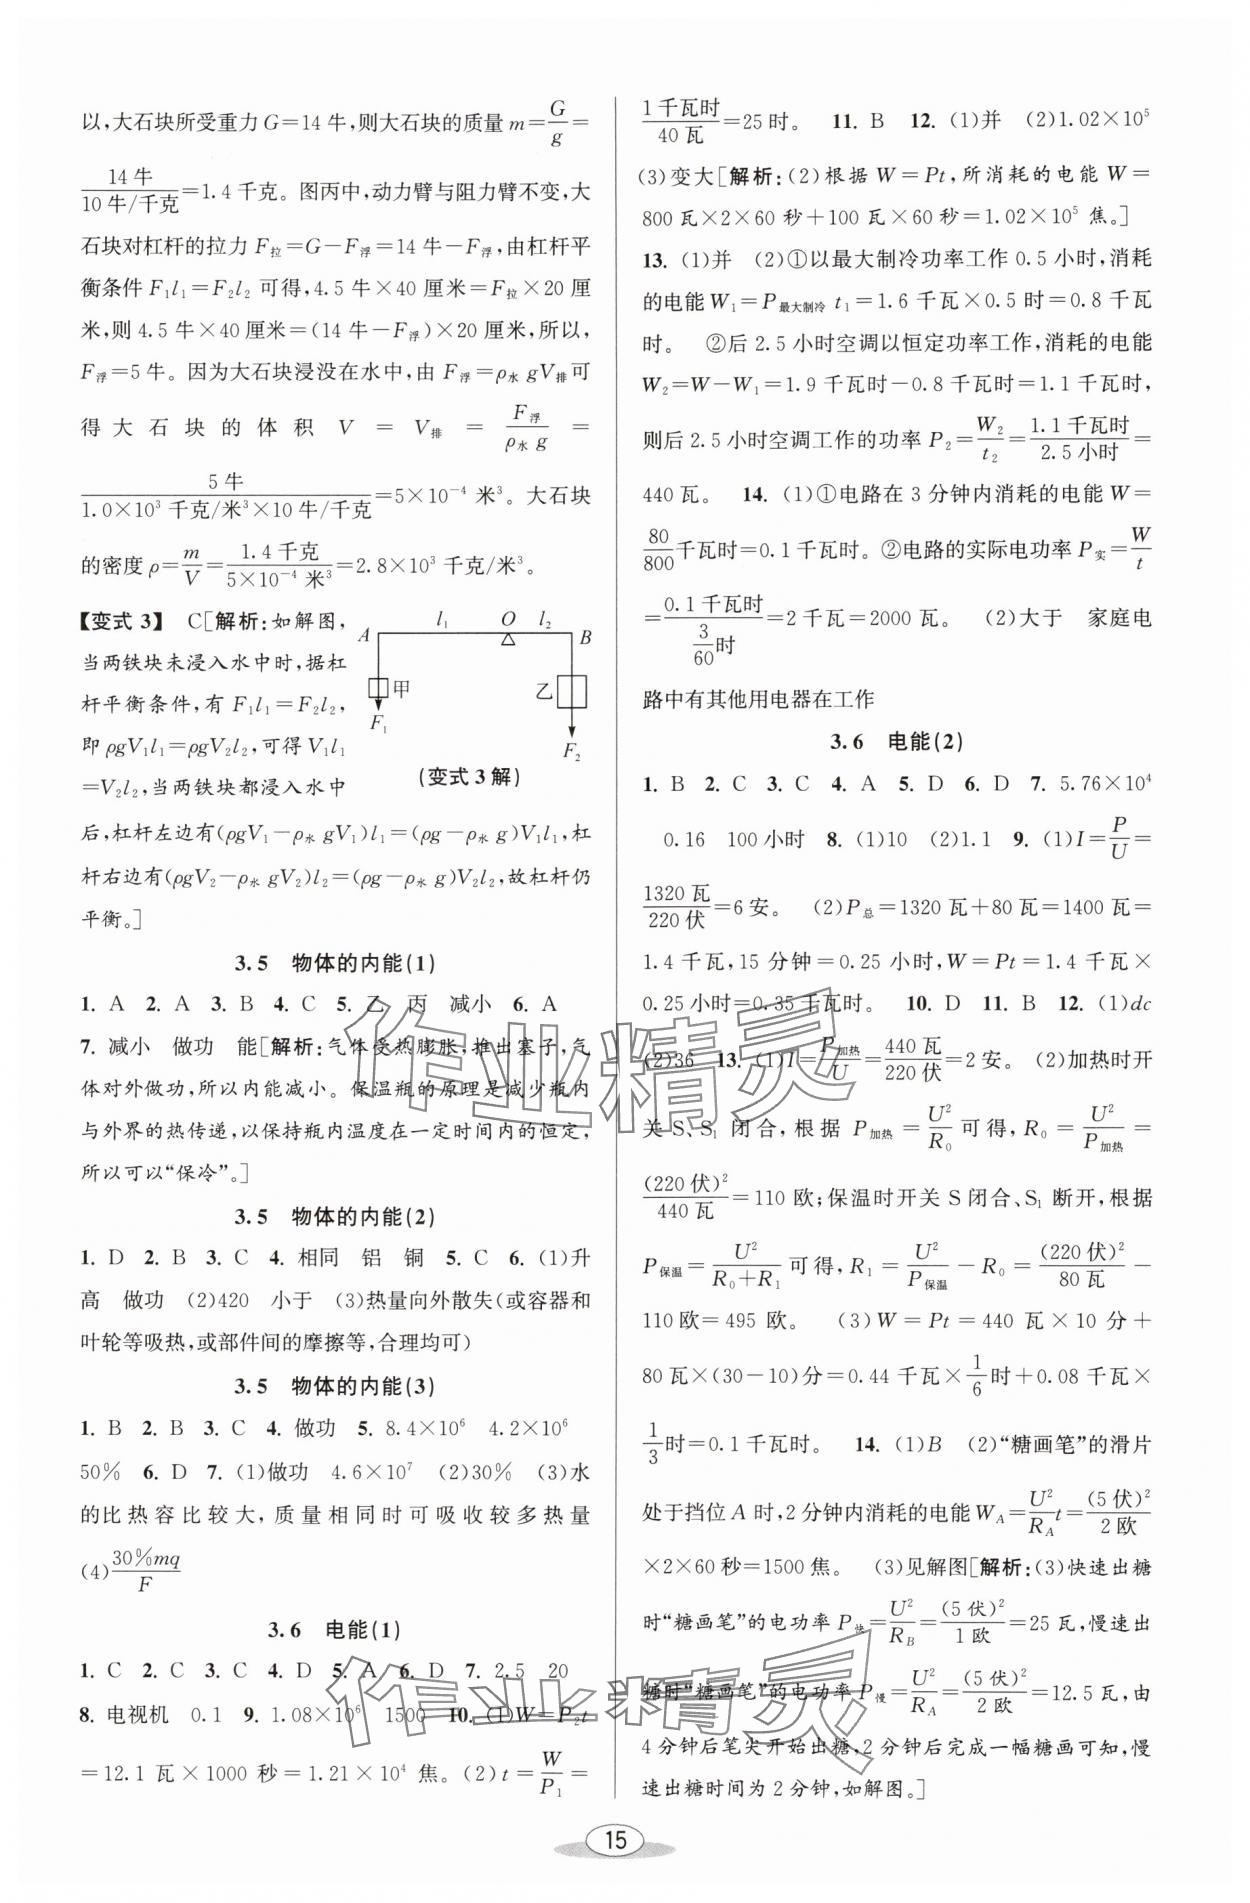 以,大石块所受重力 G=14 牛,则大石块的质量 m=G/g=
14 牛/10 牛/千克=1.4 千克。图丙中,动力臂与阻力臂不变,大
石块对杠杆的拉力 F拉=G-F浮=14 牛-F浮,由杠杆平
衡条件 F₁l₁=F₂l₂ 可得,4.5 牛×40 厘米=F拉×20 厘
米,则 4.5 牛×40 厘米=(14 牛-F浮)×20 厘米,所以,
F浮=5 牛。因为大石块浸没在水中,由 F浮=ρ水 gV排可
得大石块的体积 V=V排=F浮/ρ水 g=
5 牛/1.0×10³ 千克/米³×10 牛/千克=5×10⁻⁴ 米³。大石块
的密度 ρ=m/V=1.4 千克/5×10⁻⁴ 米³=2.8×10³ 千克/米³。
【变式 3】 C[解析:如解图,
当两铁块未浸入水中时,据杠
杆平衡条件,有 F₁l₁=F₂l₂,
即 ρgV₁l₁=ρgV₂l₂,可得 V₁l₁
=V₂l₂,当两铁块都浸入水中
A l₁ O l₂ B
甲 乙
F₁ F₂
(变式 3 解)
后,杠杆左边有(ρgV₁-ρ水 gV₁)l₁=(ρg-ρ水 g)V₁l₁,杠
杆右边有(ρgV₂-ρ水 gV₂)l₂=(ρg-ρ水 g)V₂l₂,故杠杆仍
平衡。]
3.5 物体的内能(1)
1. A 2. A 3. B 4. C 5. 乙 丙 减小 6. A
7. 减小 做功 能[解析:气体受热膨胀,推出塞子,气
体对外做功,所以内能减小。保温瓶的原理是减少瓶内
与外界的热传递,以保持瓶内温度在一定时间内的恒定,
所以可以“保冷”。]
3.5 物体的内能(2)
1. D 2. B 3. C 4. 相同 铝 铜 5. C 6. (1)升
高 做功 (2)420 小于 (3)热量向外散失(或容器和
叶轮等吸热,或部件间的摩擦等,合理均可)
3.5 物体的内能(3)
1. B 2. B 3. C 4. 做功 5. 8.4×10⁶ 4.2×10⁶
50% 6. D 7. (1)做功 4.6×10⁷ (2)30% (3)水
的比热容比较大,质量相同时可吸收较多热量
(4)30%mq/F
3.6 电能(1)
1. C 2. C 3. C 4. D 5. A 6. D 7. 2.5 20
8. 电视机 0.1 9. 1.08×10⁶ 1500 10. (1)W=P₂t
=12.1 瓦×1000 秒=1.21×10⁴ 焦。(2)t=W/P₁=
1 千瓦时/40 瓦=25 时。 11. B 12. (1)并 (2)1.02×10⁵
(3)变大[解析:(2)根据 W=Pt,所消耗的电能 W=
800 瓦×2×60 秒+100 瓦×60 秒=1.02×10⁵ 焦。]
13. (1)并 (2)①以最大制冷功率工作 0.5 小时,消耗
的电能 W₁=P最大制冷 t₁=1.6 千瓦×0.5 时=0.8 千瓦
时。 ②后 2.5 小时空调以恒定功率工作,消耗的电能
W₂=W-W₁=1.9 千瓦时-0.8 千瓦时=1.1 千瓦时,
则后 2.5 小时空调工作的功率 P₂=W₂/t₂=1.1 千瓦时/2.5 小时=
440 瓦。 14. (1)①电路在 3 分钟内消耗的电能 W=
80/800千瓦时=0.1 千瓦时。②电路的实际电功率 P实=W/t
=0.1 千瓦时/(3/60)时=2 千瓦=2000 瓦。 (2)大于 家庭电
路中有其他用电器在工作
3.6 电能(2)
1. B 2. C 3. C 4. A 5. D 6. D 7. 5.76×10⁴
0.16 100 小时 8. (1)10 (2)1.1 9. (1)I=P/U=
1320 瓦/220 伏=6 安。 (2)P总=1320 瓦+80 瓦=1400 瓦=
1.4 千瓦,15 分钟=0.25 小时,W=Pt=1.4 千瓦×
0.25 小时=0.35 千瓦时。 10. D 11. B 12. (1)dc
(2)36 13. (1)I=P加热/U=440 瓦/220 伏=2 安。 (2)加热时开
关 S、S₁ 闭合,根据 P加热=U²/R₀可得,R₀=U²/P加热=
(220 伏)²/440 瓦=110 欧;保温时开关 S 闭合、S₁ 断开,根据
P保温=U²/R₀+R₁可得,R₁=U²/P保温-R₀=(220 伏)²/80 瓦-
110 欧=495 欧。 (3)W=Pt=440 瓦×10 分+
80 瓦×(30-10)分=0.44 千瓦×1/6时+0.08 千瓦×
1/3时=0.1 千瓦时。 14. (1)B (2)“糖画笔”的滑片
处于挡位 A 时,2 分钟内消耗的电能 W_A=U²/R_A t=(5 伏)²/2 欧
×2×60 秒=1500 焦。 (3)见解图[解析:(3)快速出糖
时“糖画笔”的电功率 P快=U²/R_B=(5 伏)²/1 欧=25 瓦,慢速出
糖时“糖画笔”的电功率 P慢=U²/R_A=(5 伏)²/2 欧=12.5 瓦,由
4 分钟后笔尖开始出糖,2 分钟后完成一幅糖画可知,慢
速出糖时间为 2 分钟,如解图。]
作业精灵
作业精灵
15